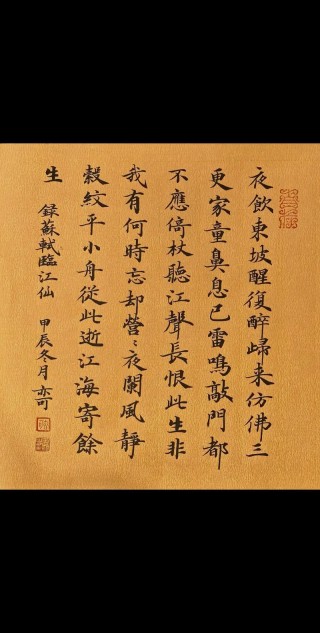 夜飲東坡醒復醉歸来仿佛三
更家童鼻息已雷鳴敲門都
不應倚杖聽江聲長恨此生非
我有何時忘却營〻夜闌風靜
縠紋平小舟從此逝江海寄餘
生
録蘇軾臨江仙 甲辰冬月